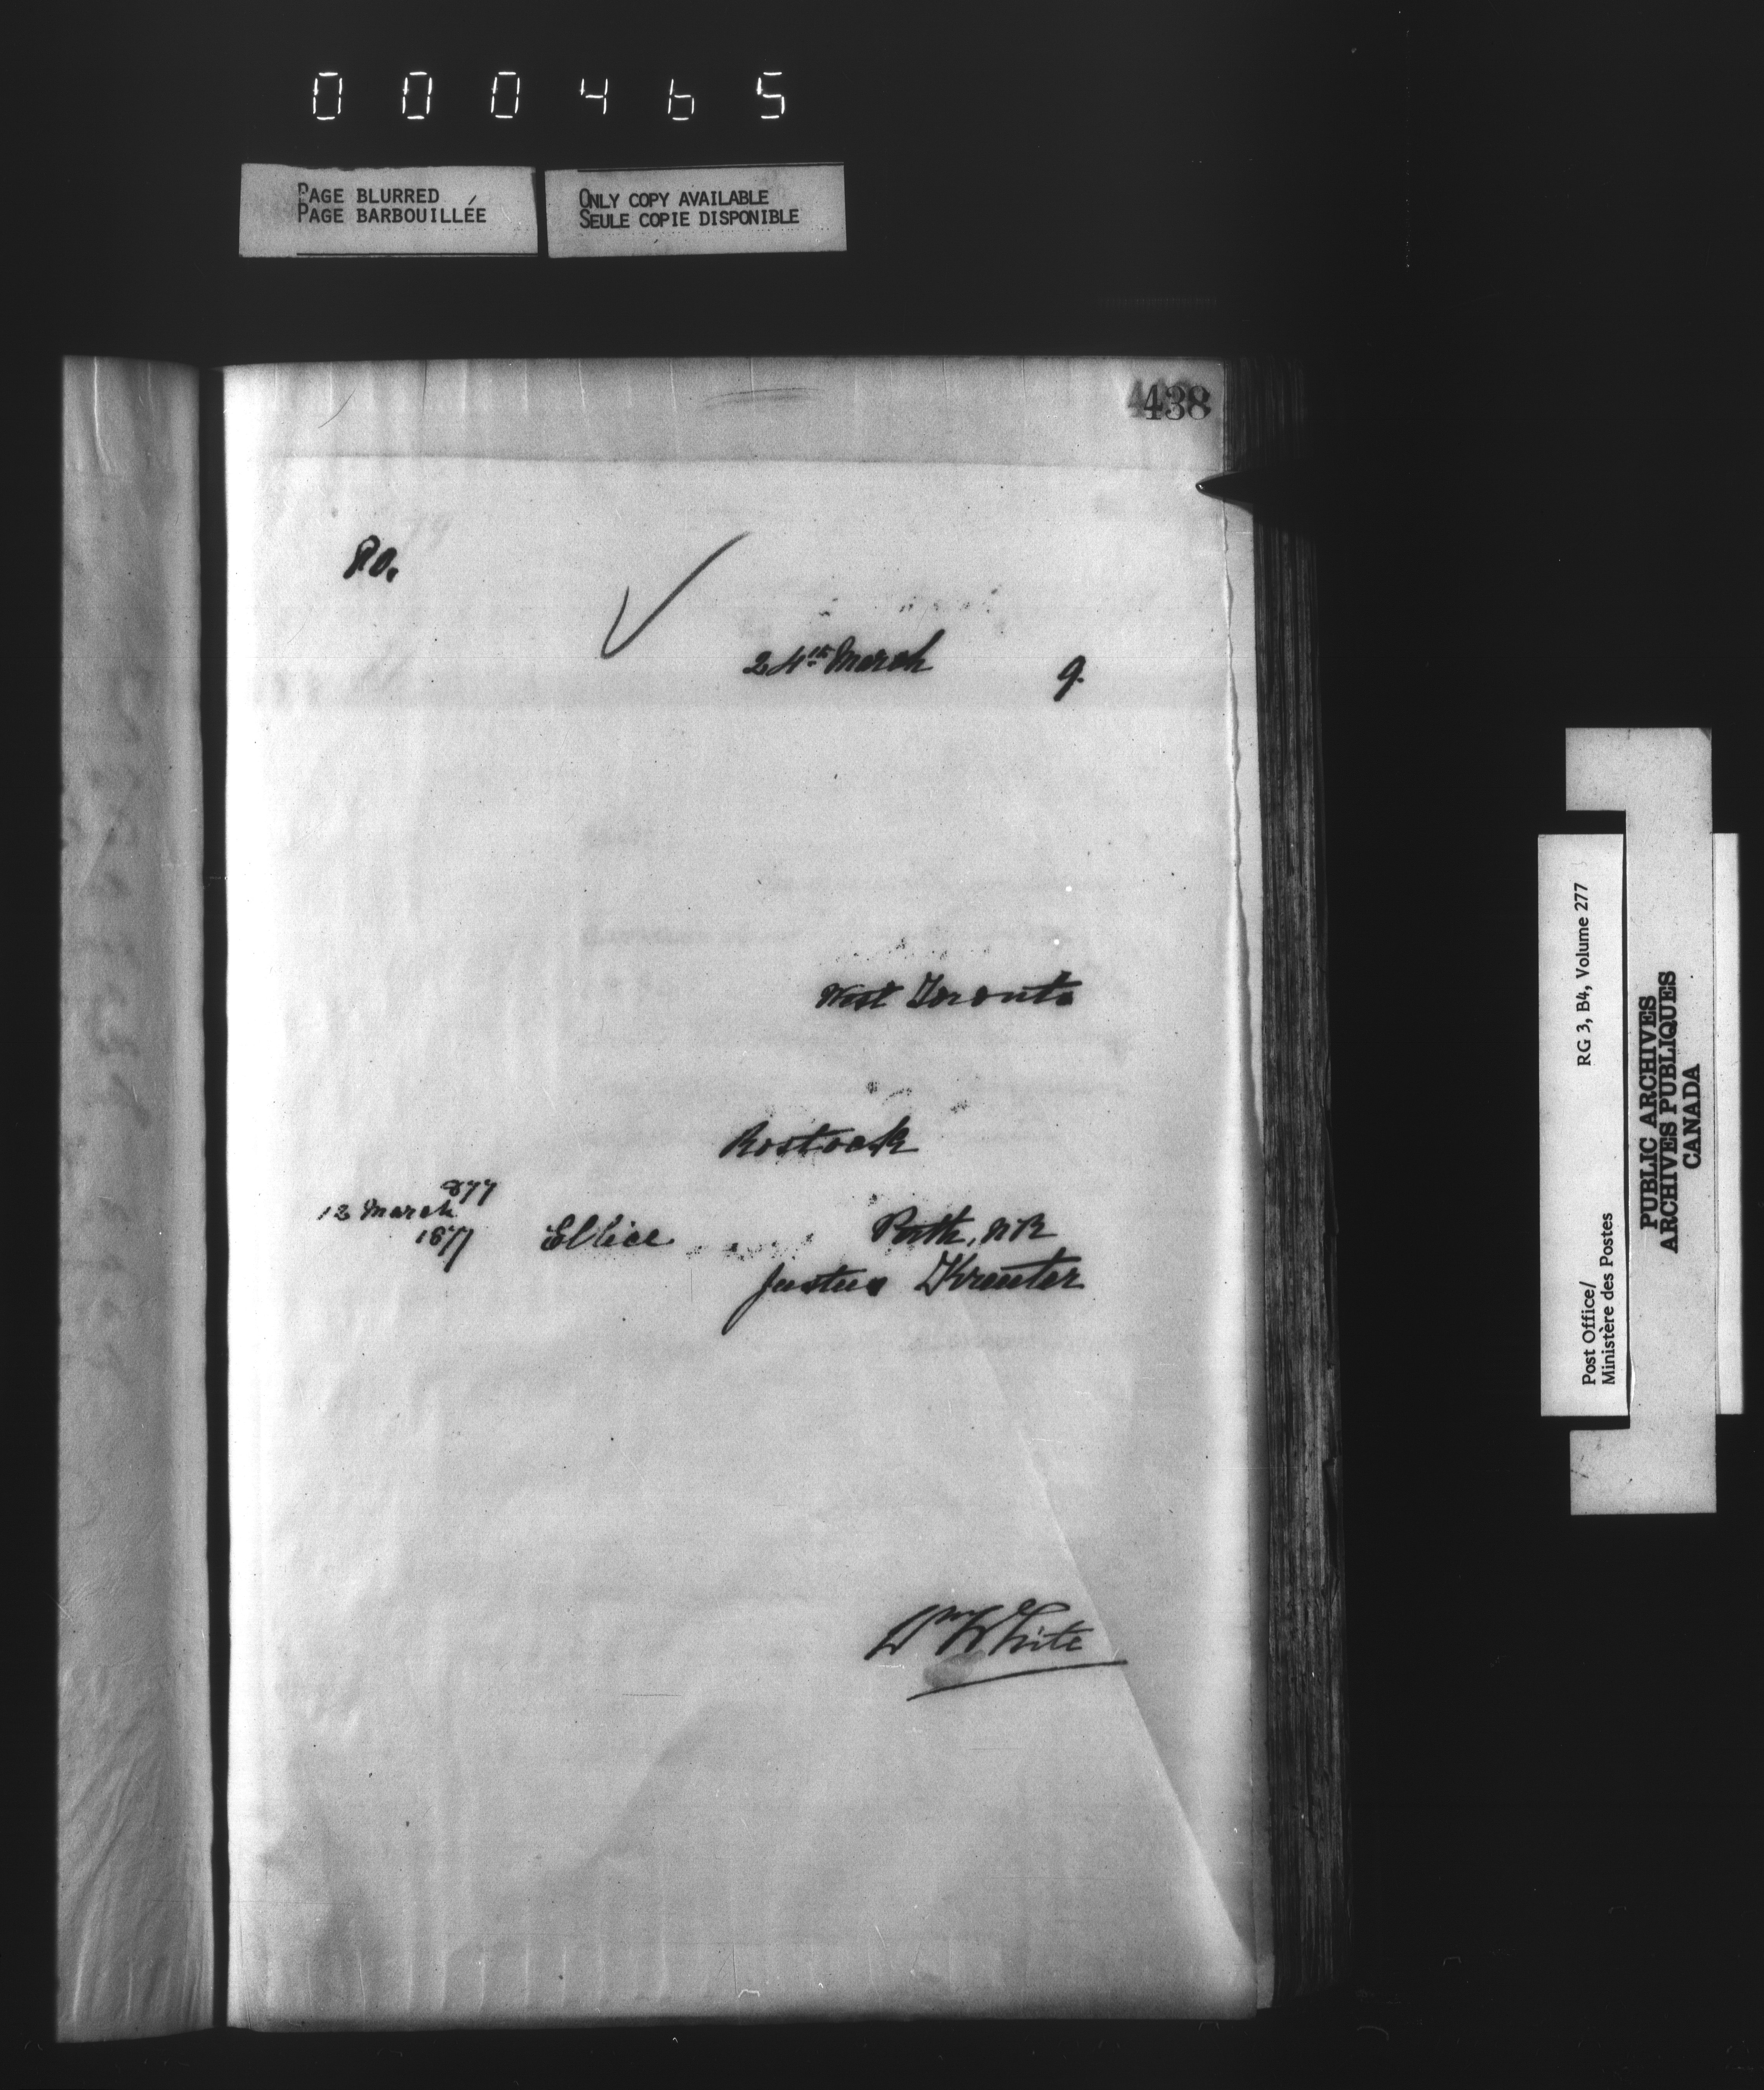 000465
PAGE BLURRED
PAGE BARBOUILLÉE
ONLY COPY AVAILABLE
SEULE COPIE DISPONIBLE
438
P.O.
24th March 9.
West Toronto
Rostock
877
12 March
1877
Ellice Perth, N R
Justus Kreuter
Wm White
Post Office/
Ministère des Postes
RG 3, B4, Volume 277
PUBLIC ARCHIVES
ARCHIVES PUBLIQUES
CANADA